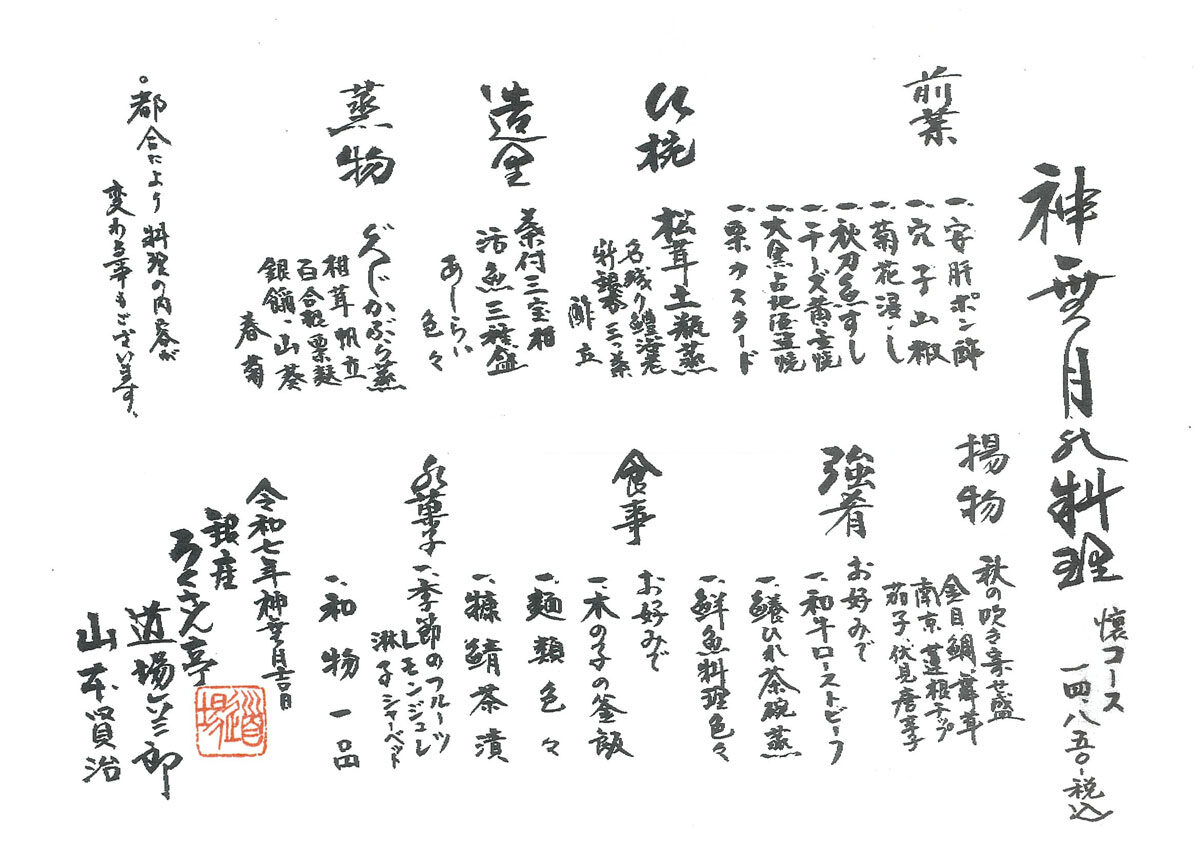 神無月の料理
懐コース
一四、八五〇-税込
前菜
一、安肝ポン酢
一、穴子山椒
一、菊花浸し
一、秋刀魚すし
一、チーズ黄金焼
一、大黒占地
一、栗カスタード
吸椀
松茸土瓶蒸
名残り鱧 海老
新銀杏 三つ葉
酢立
造里
葉付三宝柑
活魚三種盛
あしらい
色々
蒸物
ぐじかぶら蒸
柑茸 帆立
百合根 栗麩
銀餡、山葵
春菊
揚物
秋の吹き寄せ盛
金目鯛、舞茸
南京 蓮根チップ
茄子 伏見唐辛子
強肴
お好みで
一、和牛ローストビーフ
一、鱶ひれ茶碗蒸
一、鮮魚料理色々
食事
お好みで
一、木の子の釜飯
一、麺類色々
一、糠鯖茶漬
水菓子
一、季節のフルーツ
レモンジュレ
淋子シャーベット
一、和物一口
令和七年神無月吉日
銀座
ろくさん亭
道場六三郎
山本賢治
道場
。都合により料理の内容が
変わる事もございます。